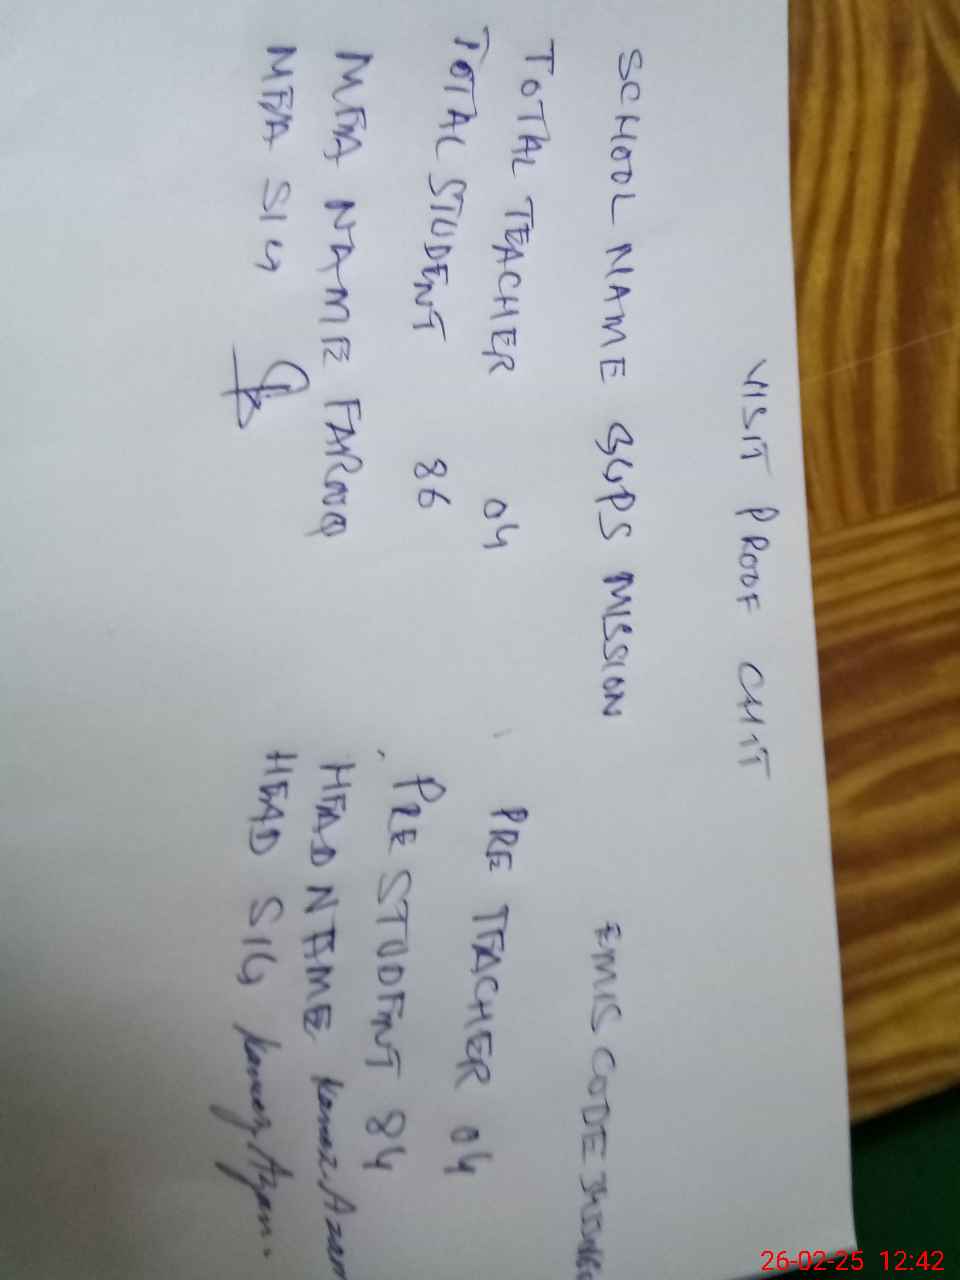 VISIT PROOF CHIT
SCHOOL NAME GGPS MISSION EMIS CODE
TOTAL TEACHER 04 PRE TEACHER 04
TOTAL STUDENT 86 PRE STUDENT 84
MEA NAME FAROOQ HEAD NAME Azam
MEA SIG HEAD SIG
26-02-25 12:42